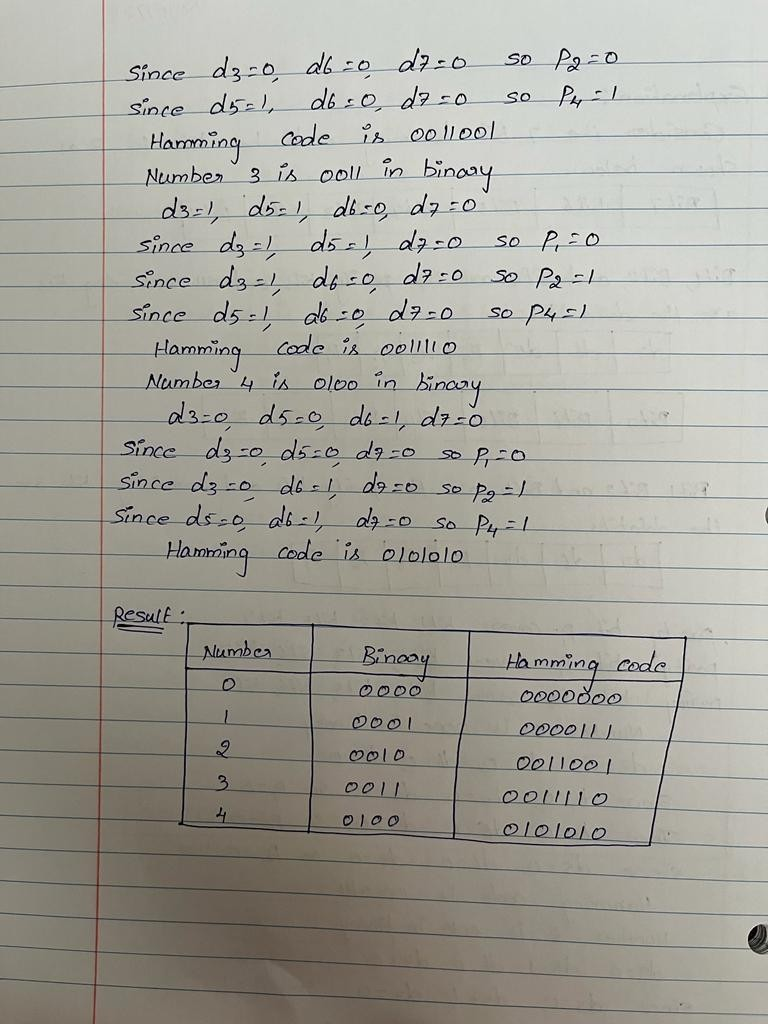 Since d3=0, d6=0, d7=0 so P2=0
Since d5=1, d6=0, d7=0 so P4=1
Hamming code is 0011001
Number 3 is 0011 in binary
d3=1, d5=1, d6=0, d7=0
Since d3=1, d5=1, d7=0 so P1=0
Since d3=1, d6=0, d7=0 so P2=1
Since d5=1, d6=0, d7=0 so P4=1
Hamming code is 0011110
Number 4 is 0100 in binary
d3=0, d5=0, d6=1, d7=0
Since d3=0, d5=0, d7=0 so P1=0
Since d3=0, d6=1, d7=0 so P2=1
Since d5=0, d6=1, d7=0 so P4=1
Hamming code is 0101010
Result:
Number Binary Hamming code
0 0000 0000000
1 0001 0000111
2 0010 0011001
3 0011 0011110
4 0100 0101010